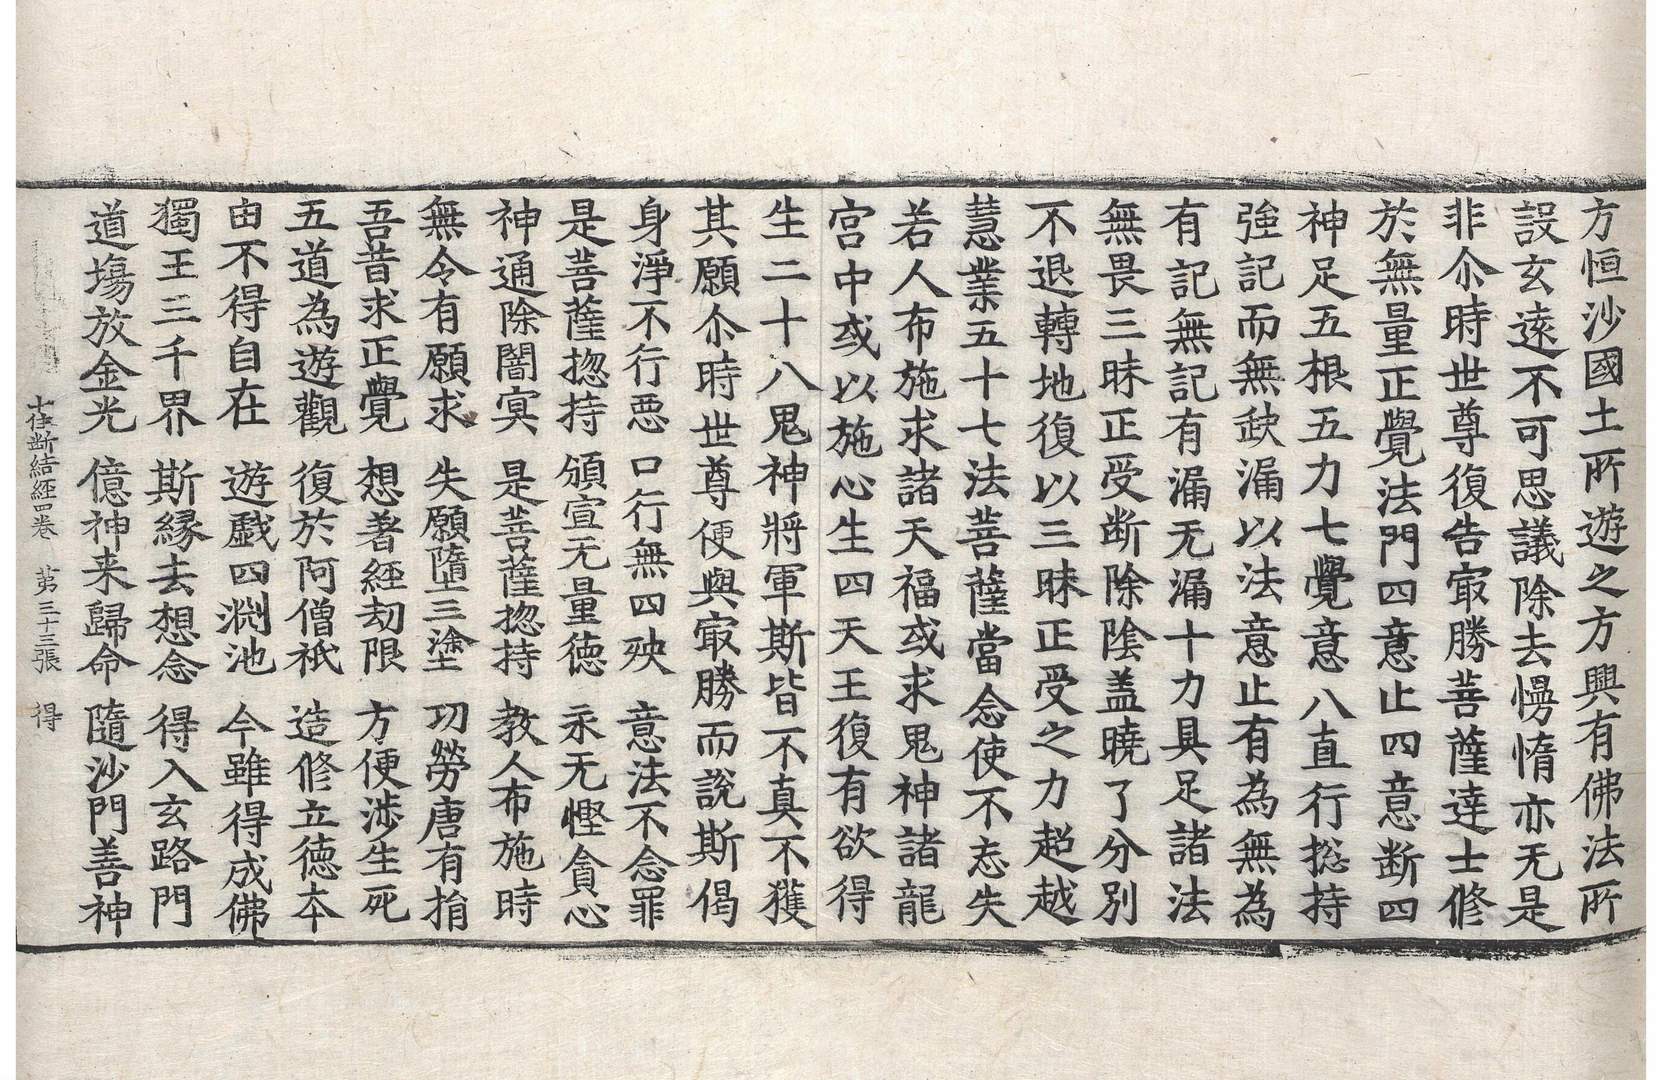 方恒沙國土所遊之方興有佛法所
設玄遠不可思議除去憍惰亦无是
非尒時世尊復告㝡勝菩薩達士修
於無量正覺法門四意止四意断四
神足五根五力七覺意八直行捴持
強記而無缺漏以法意止有為無為
有記無記有漏无漏十力具足諸法
無畏三昧正受断除陰盖曉了分別
不退轉地復以三昧正受之力超越
慧業五十七法菩薩當念使不忘失
若人布施求諸天福或求鬼神諸龍
宮中或以施心生四天王復有欲得
生二十八鬼神將軍斯皆不真不獲
其願尒時世尊便與㝡勝而說斯偈
身淨不行惡　口行無四殃　意法不念罪
是菩薩惣持　頒宣无量徳　永无慳貪心
神通除闇㝠　是菩薩惣持　教人布施時
無令有願求　失願墮三塗　功勞唐有捐
吾昔求正覺　想著經劫限　方便渉生死
五道為遊觀　復於阿僧祇　造修立徳本
由不得自在　遊戯四淵池　今雖得成佛
獨王三千界　斯縁去想念　得入玄路門
道塲放金光　億神来歸命　隨沙門善神
十住断結経四巻　苐三十三張　得